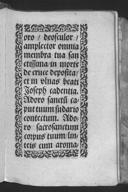 oro / deosculor /
amplector omnia
membra tua san
ctissima in morte
de cruce deposita /
et in vlnas beati
Joseph cadentia.
Adoro sanctū ca
put tuum sudario
contectum. Ado
ro sacrosanctum
corpus tuum lin
teis cum aroma⸗